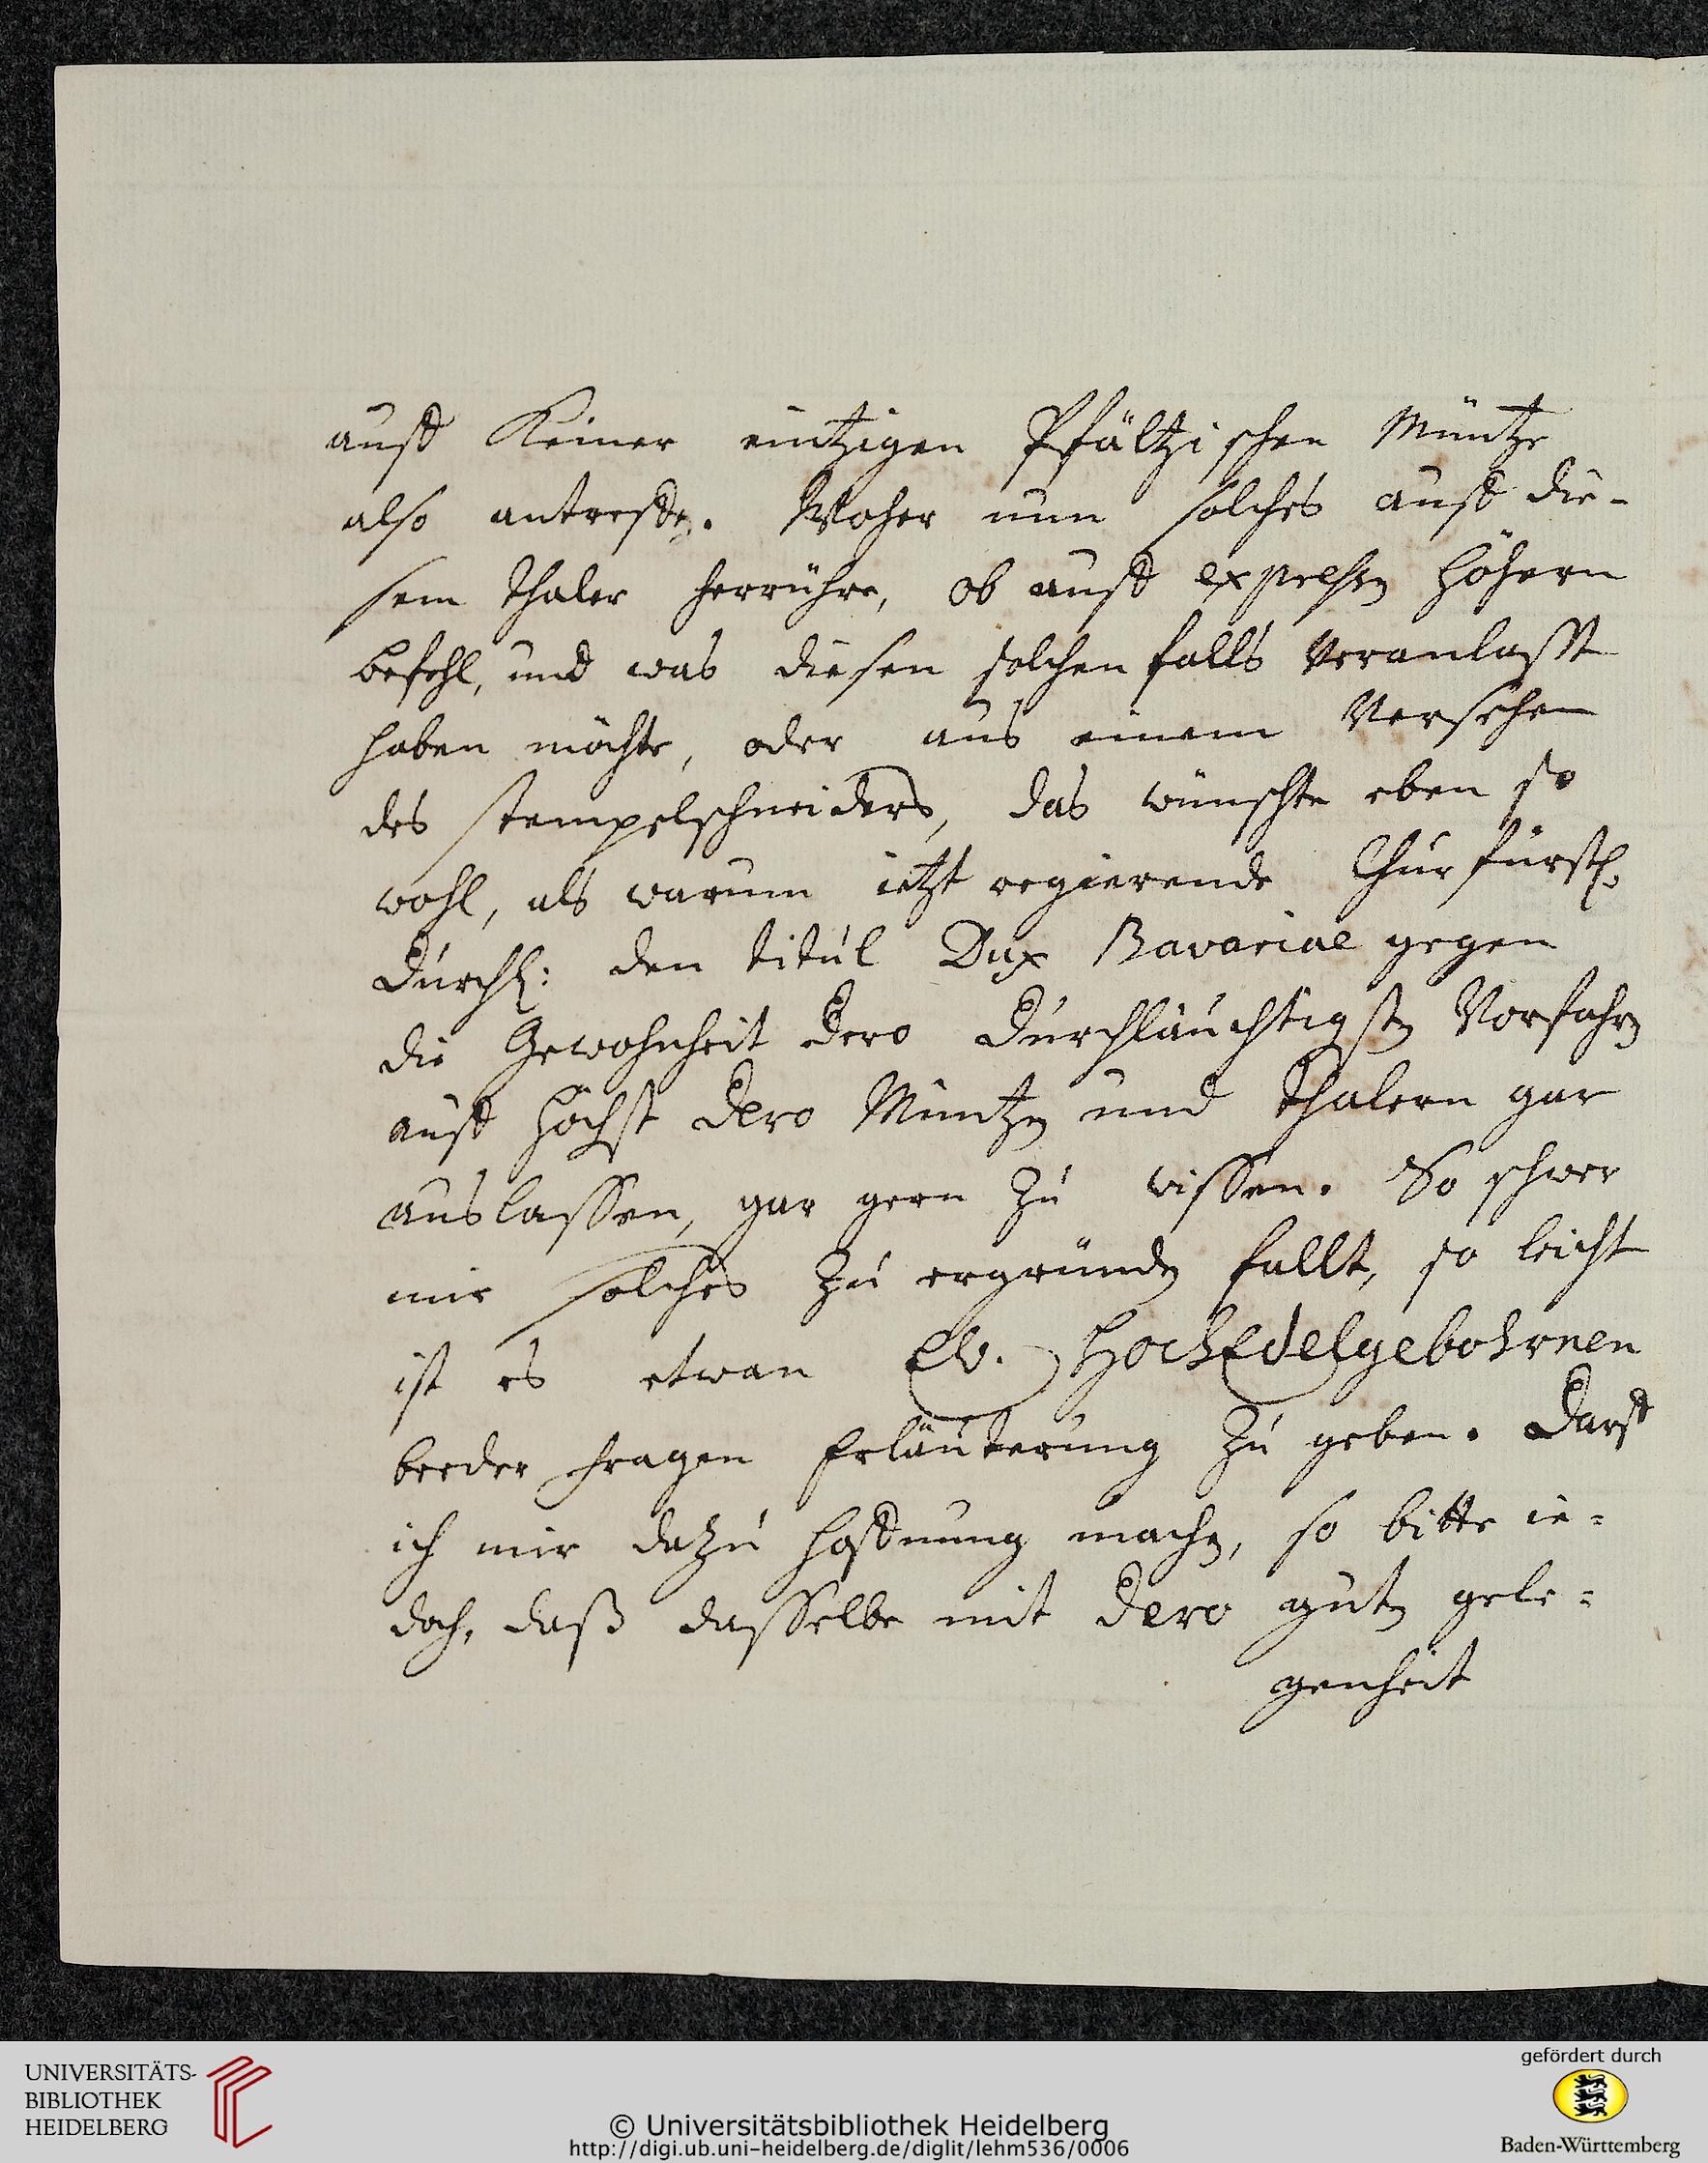 auff Keiner eintzigen Pfältzischen Müntze
also antreffe. Woher nun solches auff die-
sem Thaler herrühre, ob auff expressen höhern
befehl, und was diesen solchen falls veranlasst
haben möchte, oder aus einem Versehen
des stempelschneiders, das wünschte eben so
wohl, als warum ietzt regierende Churfürstl.
Durchl: den titul Dux Bavariae gegen
die Gewohnheit dero Durchläuchtigsten Vorfahren
auff höchst dero Müntzen und Thalern gar
auslassen, gar gern zu wissen. So schwer
mir solches zu ergründen fallt, so leicht
ist es etwan Ew. HochEdelgebohrnen
beeder fragen Erläuterung zu geben. Darff
ich mir dazu hoffnung machen, so bitte ie=
doch, daß dasselbe mit dero guten gele=
genheit
UNIVERSITÄTS-
BIBLIOTHEK
HEIDELBERG
© Universitätsbibliothek Heidelberg
http://digi.ub.uni-heidelberg.de/diglit/lehm536/0006
gefördert durch
Baden-Württemberg